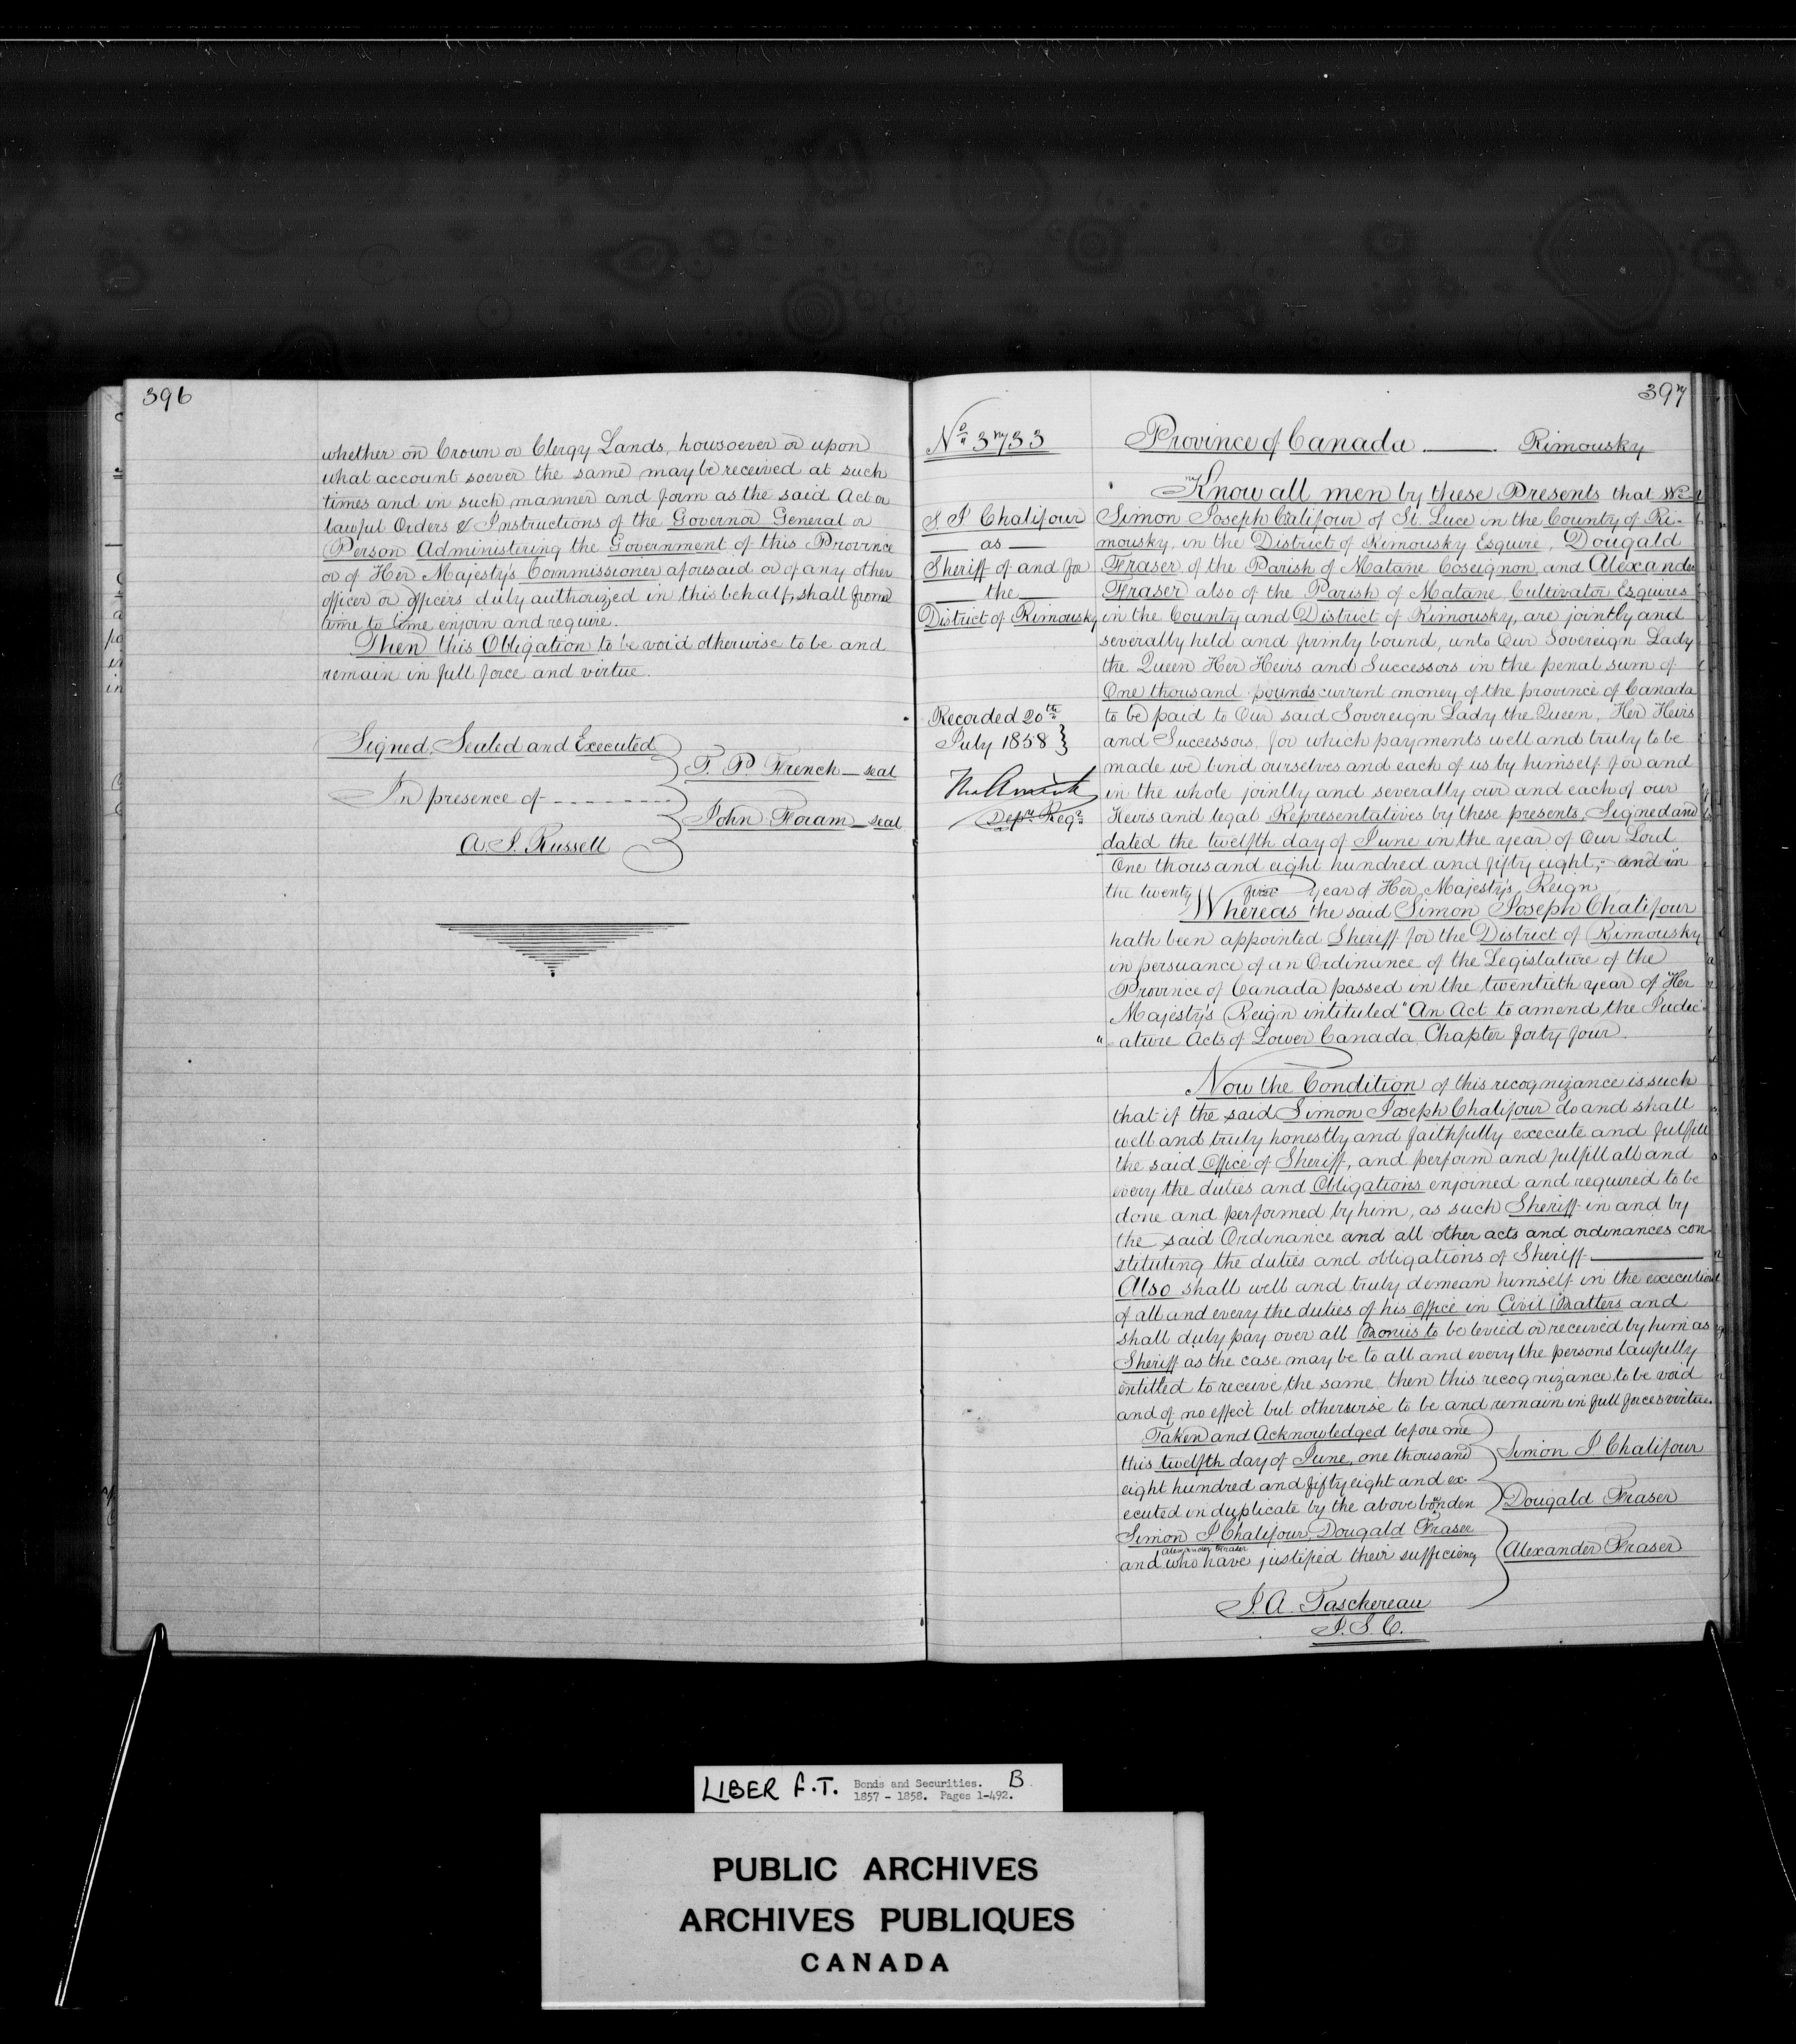 396
whether on Crown or Clergy Lands, howsoever or upon
what account soever the same may be received at such
times and in such manner and form as the said Act or
lawful Orders & Instructions of the Governor General or
Person Administering the Government of this Province
or of Her Majesty's Commissioner aforesaid or of any other
officer or officers duly authorized in this behalf, shall from
time to time enjoin and require.
Then this Obligation to be void otherwise to be and
remain in full force and virtue.
Signed, Sealed and Executed
T. P. French — seal
In presence of
John Foram — seal
A. J. Russell
397
No 3733
Province of Canada — Rimousky
S J Chalifour
— as —
Sheriff of and for
— the —
District of Rimousky
Recorded 20th
July 1858
Depy Regr
Know all men by these Presents that We
Simon Joseph Chalifour of St. Luce in the County of Ri-
mousky, in the District of Rimousky Esquire, Dougald
Fraser of the Parish of Matane Coseignor, and Alexander
Fraser also of the Parish of Matane, Cultivator, Esquires
in the County and District of Rimousky, are jointly and
severally held and firmly bound, unto Our Sovereign Lady
the Queen Her Heirs and Successors in the penal sum of
One thousand pounds current money of the province of Canada
to be paid to Our said Sovereign Lady the Queen, Her Heirs
and Successors, for which payments well and truly to be
made we bind ourselves and each of us by himself for and
in the whole jointly and severally our and each of our
Heirs and legal Representatives by these presents, Signed and
dated the twelfth day of June in the year of Our Lord
One thousand eight hundred and fifty eight, and in
the twenty first year of Her Majesty's Reign
Whereas the said Simon Joseph Chalifour
hath been appointed Sheriff for the District of Rimousky
in persuance of an Ordinance of the Legislature of the
Province of Canada passed in the twentieth year of Her
Majesty's Reign intituled "An Act to amend the Judic-
" ature Acts of Lower Canada Chapter forty four.
Now the Condition of this recognizance is such
that if the said Simon Joseph Chalifour do and shall
well and truly honestly and faithfully execute and fulfill
the said Office of Sheriff, and perform and fulfill all and
every the duties and Obligations enjoined and required to be
done and performed by him, as such Sheriff in and by
the said Ordinance and all other acts and ordinances con
stituting the duties and obligations of Sheriff —
Also shall well and truly demean himself in the execution
of all and every the duties of his office in Civil Matters and
shall duly pay over all Monies to be levied or received by him as
Sheriff as the case may be to all and every the persons lawfully
entitled to receive the same then this recognizance to be void
and of no effect but otherwise to be and remain in full force & virtue.
Taken and Acknowledged before me
this twelfth day of June, one thousand
eight hundred and fifty eight and ex-
ecuted in duplicate by the above bounden
Simon J Chalifour, Dougald Fraser
and Alexander Fraser who have justified their sufficiency
Simon J Chalifour
Dougald Fraser
Alexander Fraser
J. A. Taschereau
J. S. C.
LIBER F.T. Bonds and Securities. B
1857 - 1858. Pages 1-492.
PUBLIC ARCHIVES
ARCHIVES PUBLIQUES
CANADA